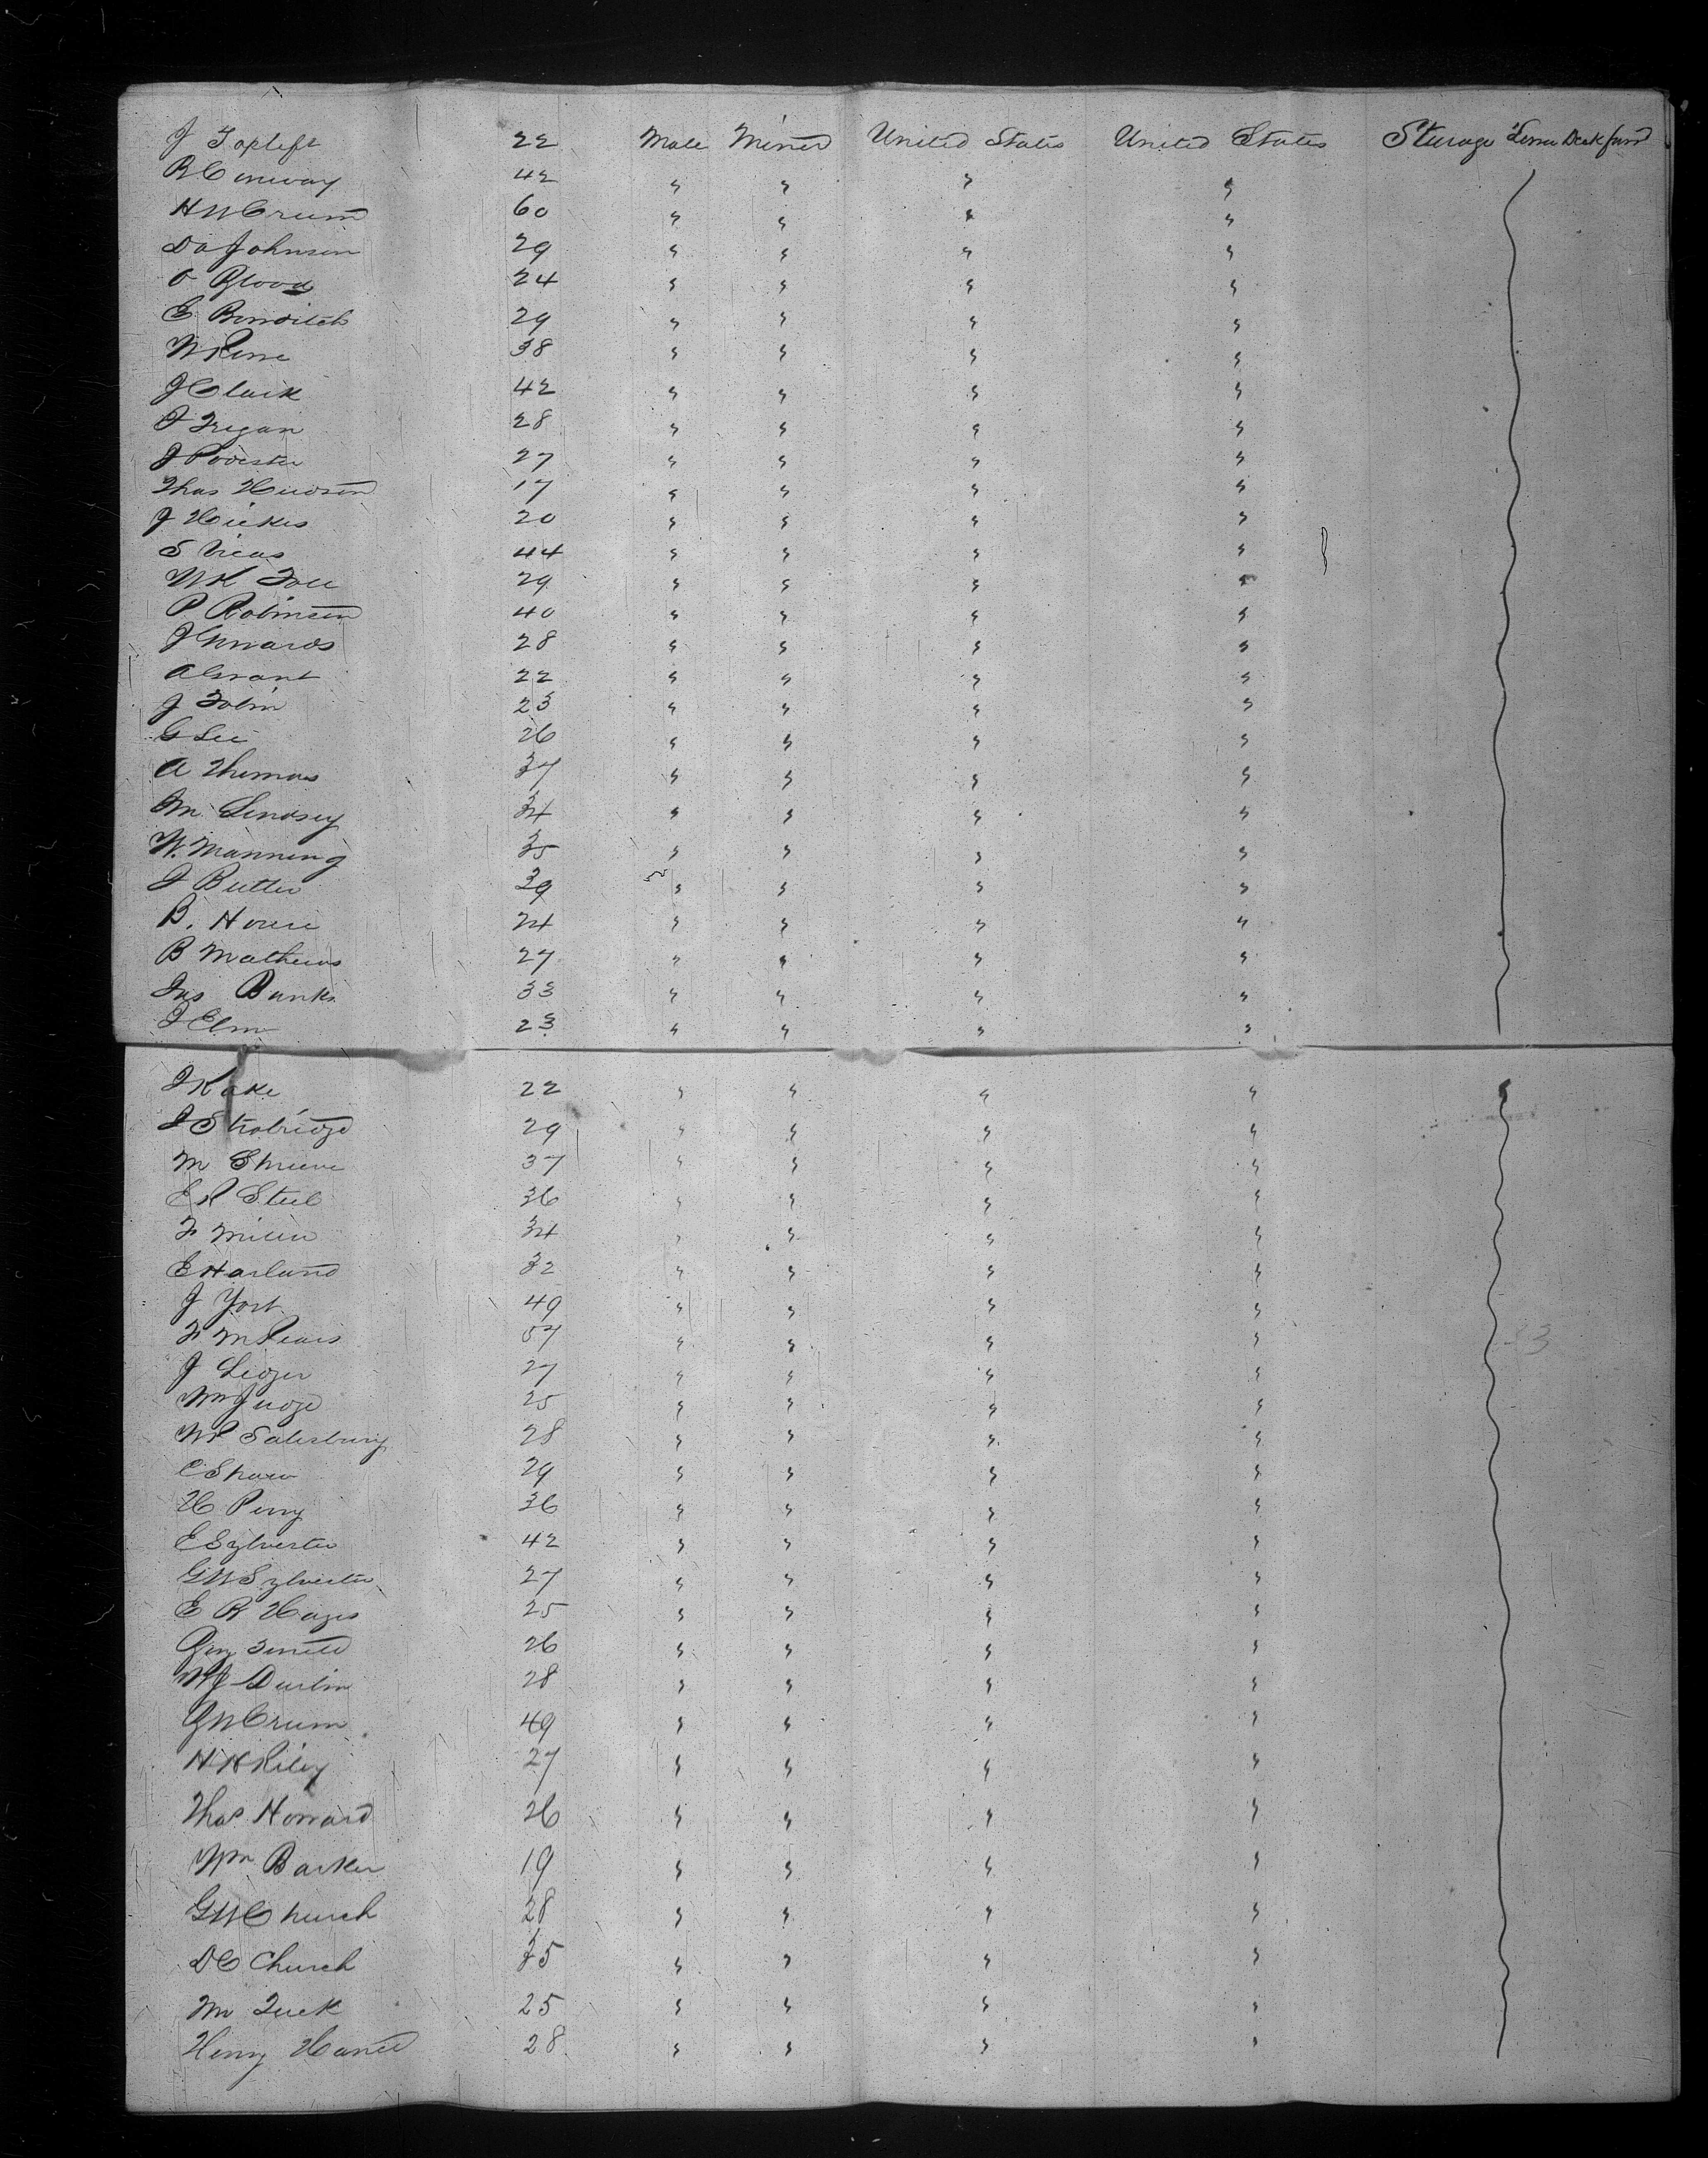 J Topliff 22 Male Miner United States United States Sterage Lower Deck forrd
R Conway 42 " " " "
H W Crum 60 " " " "
Do Johnson 29 " " " "
O Blood 24 " " " "
E Bowditch 29 " " " "
W 38 " " " "
J Clark 42 " " " "
J Fregan 28 " " " "
J 27 " " " "
Thos Hudson 17 " " " "
J Hickes 20 " " " "
S 44 " " " "
29 " " " "
P Robinson 40 " " " "
J Edwards 28 " " " "
A Grant 22 " " " "
J Tobin 23 " " " "
G Lee 26 " " " "
A Thomas 37 " " " "
M Lindsey 34 " " " "
W. Manning 35 " " " "
J Butler 39 " " " "
B. House 24 " " " "
B Mathews 27 " " " "
Jas Banks 33 " " " "
J Elm 23 " " " "
J Kake 22 " " " "
J Strobridge 29 " " " "
M Shreeve 37 " " " "
E R Steel 36 " " " "
F Miller 34 " " " "
E Harland 32 " " " "
J York 49 " " " "
F M 37 " " " "
J Ledger 27 " " " "
Wm Judge 25 " " " "
W P Salisbury 28 " " " "
C Shaw 29 " " " "
H Perry 36 " " " "
E Sylvester 42 " " " "
G W Sylvester 27 " " " "
E R Hayes 25 " " " "
26 " " " "
W J Durbin 28 " " " "
G W Crum 49 " " " "
H H Riley 27 " " " "
Thos Howard 26 " " " "
Wm Barker 19 " " " "
G W Church 28 " " " "
D C Church 35 " " " "
M Tuck 25 " " " "
Henry 28 " " " "